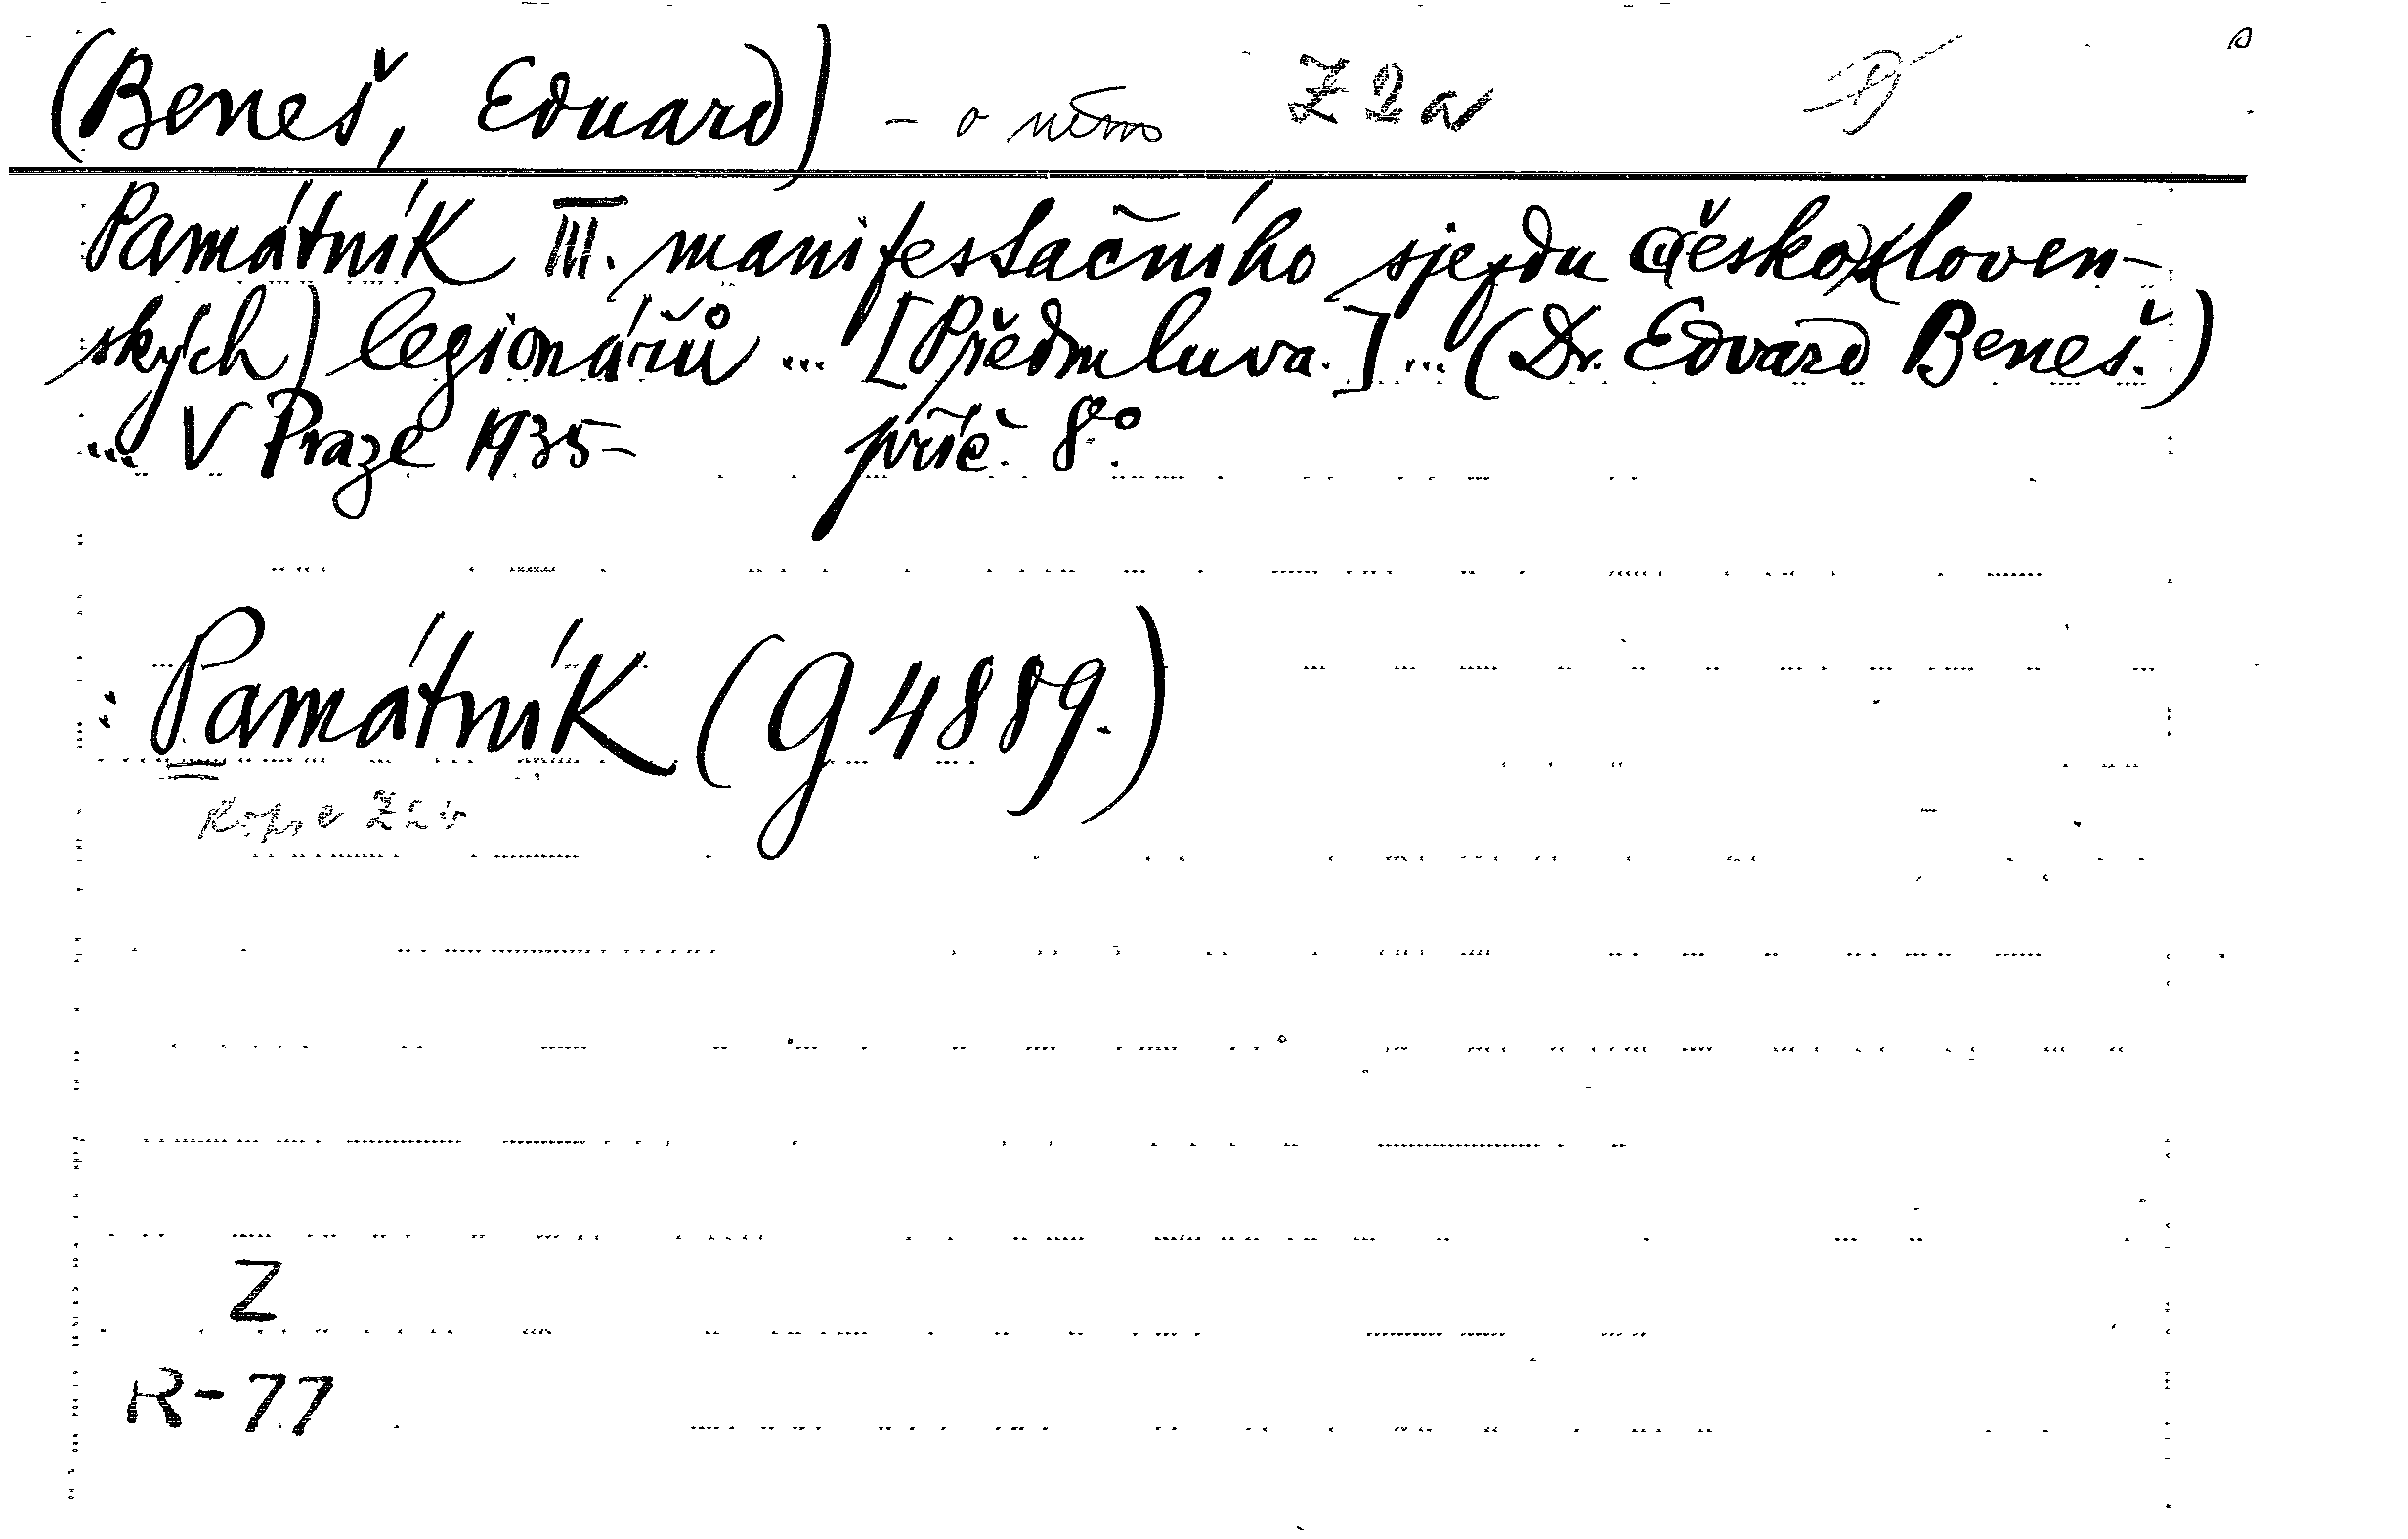 (Beneš, Eduard) - o něm Z 2a
Památník III. manifestačního sjezdu č(esko)s(loven-
ských) legionářů ... [Předmluva.] ... (Dr. Edvard Beneš.)
... V Praze 1935- příč. 8°.
: Památník (G 4889.)
Kopie Z2a
Z
R-77